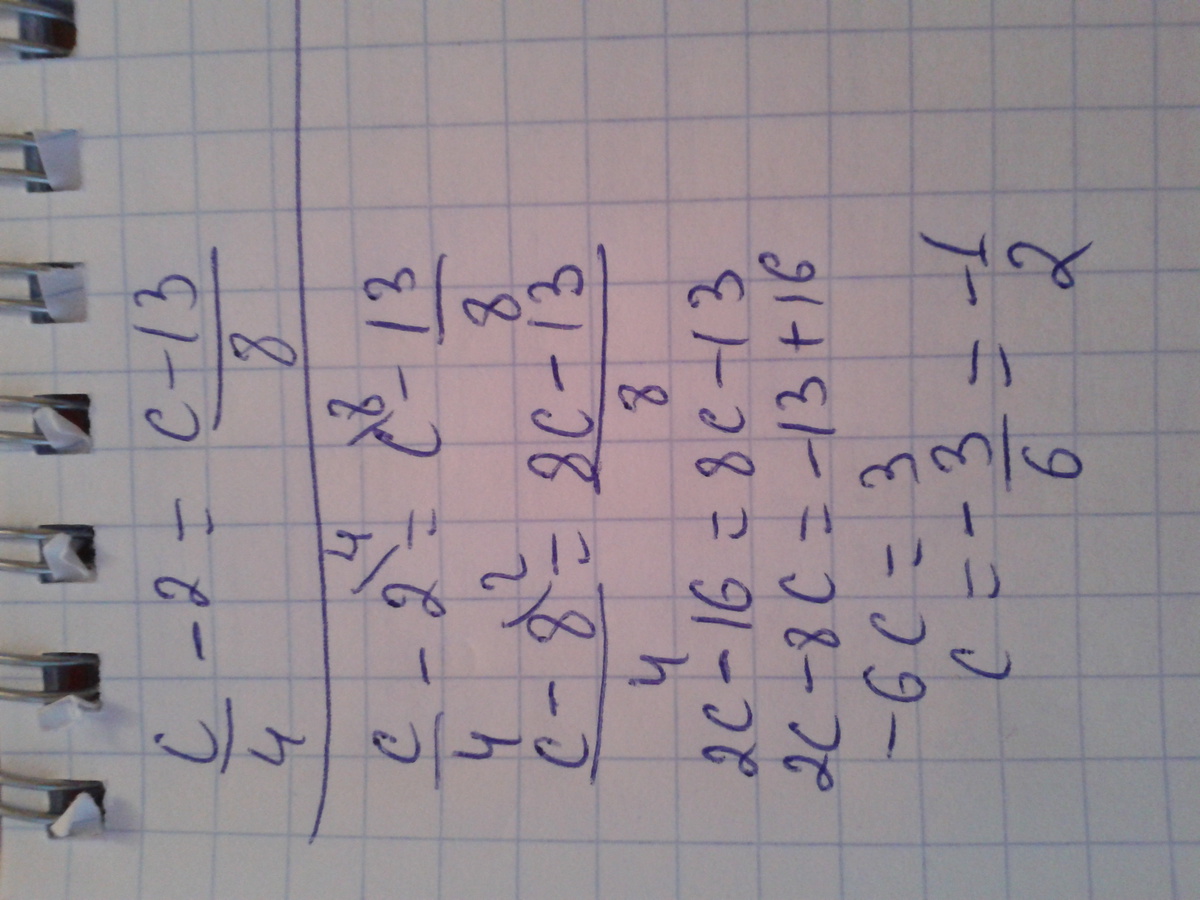 c/4 - 2 = (c - 13)/8
c/4 - 2\4 = c\8 - 13/8
(c - 8\2)/4 = (8c - 13)/8
2c - 16 = 8c - 13
2c - 8c = -13 + 16
-6c = 3
c = -3/6 = -1/2